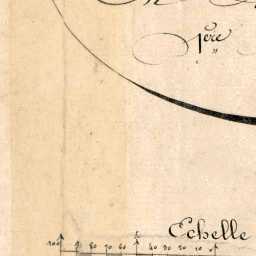 1ère
"
Echelle
100 90 80 70 60 40 30 20 10 0